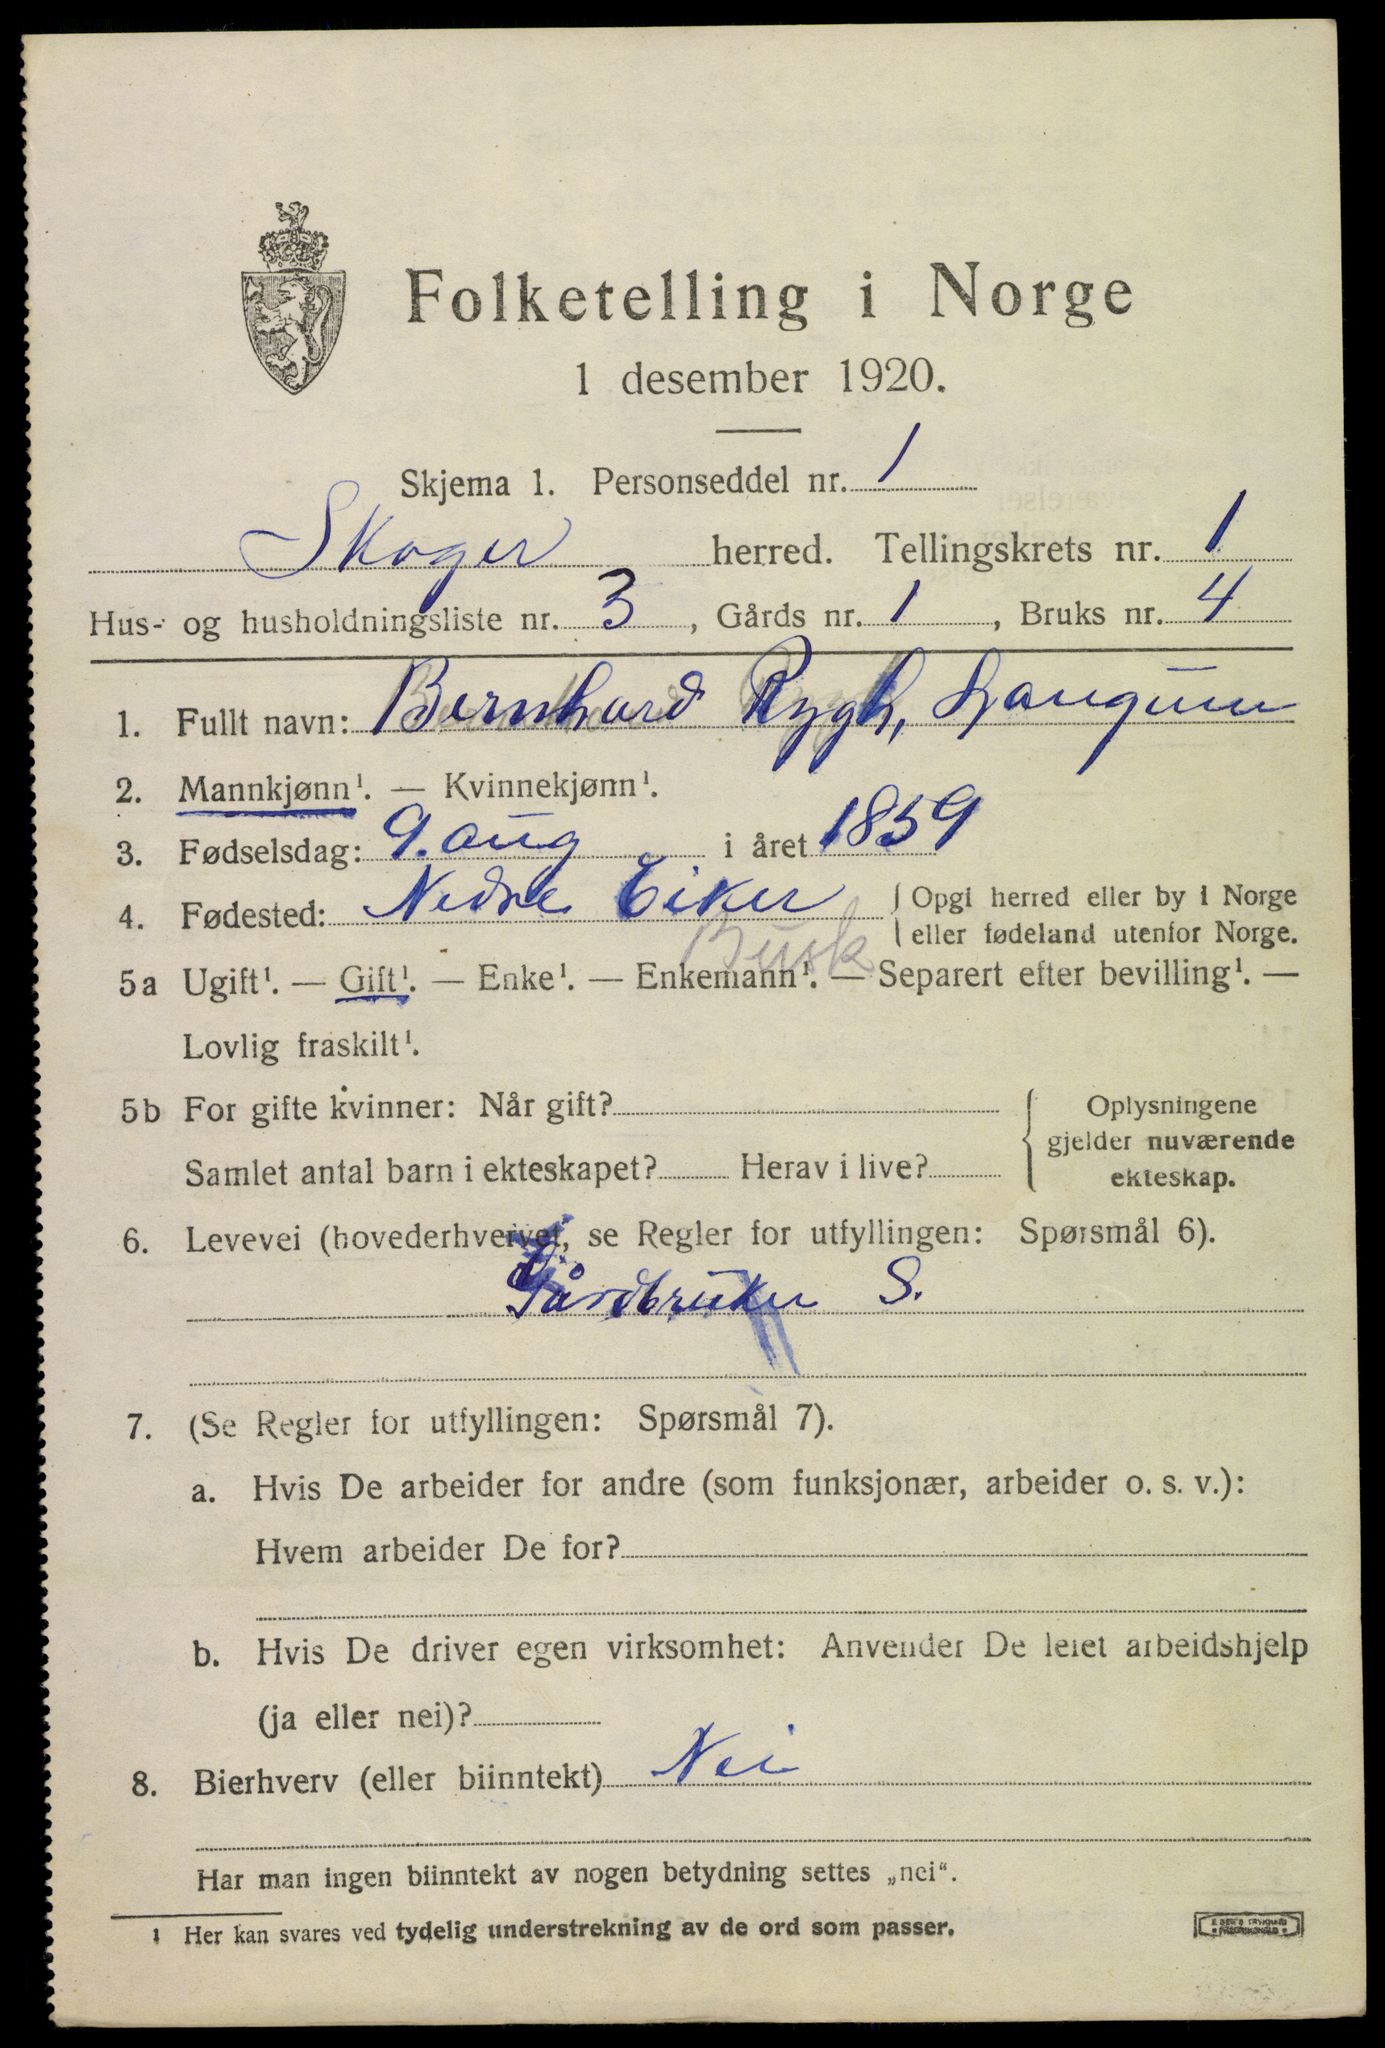 Folketelling i Norge
1 desember 1920.
Skjema 1. Personseddel nr. 1
Skoger herred. Tellingskrets nr. 1
Hus- og husholdningsliste nr. 3, Gårds nr. 1, Bruks nr. 4
1. Fullt navn: Bernhard Rygh, Langum
2. Mannkjønn¹. — Kvinnekjønn¹.
3. Fødselsdag: 9. aug i året 1859
4. Fødested: Nedre Eiker { Opgi herred eller by i Norge
eller fødeland utenfor Norge.
Busk
5a Ugift¹. — Gift¹. — Enke¹. — Enkemann¹. — Separert efter bevilling¹. —
Lovlig fraskilt¹.
5b For gifte kvinner: Når gift? { Oplysningene
gjelder nuværende
Samlet antal barn i ekteskapet? Herav i live?
ekteskap.
6. Levevei (hovederhvervet, se Regler for utfyllingen: Spørsmål 6).
Gårdbruker S.
7. (Se Regler for utfyllingen: Spørsmål 7).
a. Hvis De arbeider for andre (som funksjonær, arbeider o. s. v.):
Hvem arbeider De for?
b. Hvis De driver egen virksomhet: Anvender De leiet arbeidshjelp
(ja eller nei)?
8. Bierhverv (eller biinntekt) Nei
Har man ingen biinntekt av nogen betydning settes „nei“.
1 Her kan svares ved tydelig understrekning av de ord som passer.